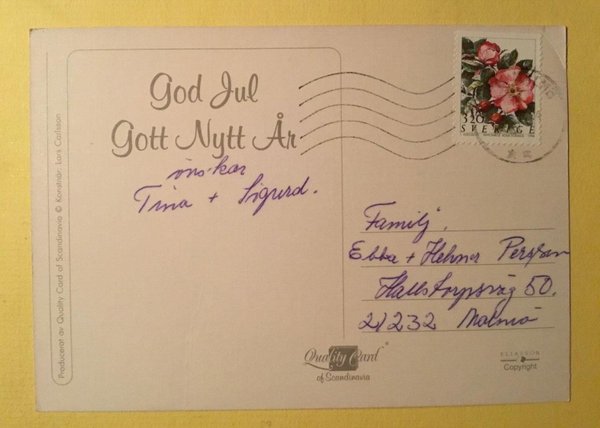 God Jul
Gott Nytt År
önskar
Tina + Sigurd.
Producerat av Quality Card of Scandinavia © Konstnär: Lars Carlsson
320
SVERIGE
Familj.
Ebba + Hehner Persson
Hallstorpsväg 50.
21232 Malmö
Quality Card
of Scandinavia
ELIASSON
Copyright